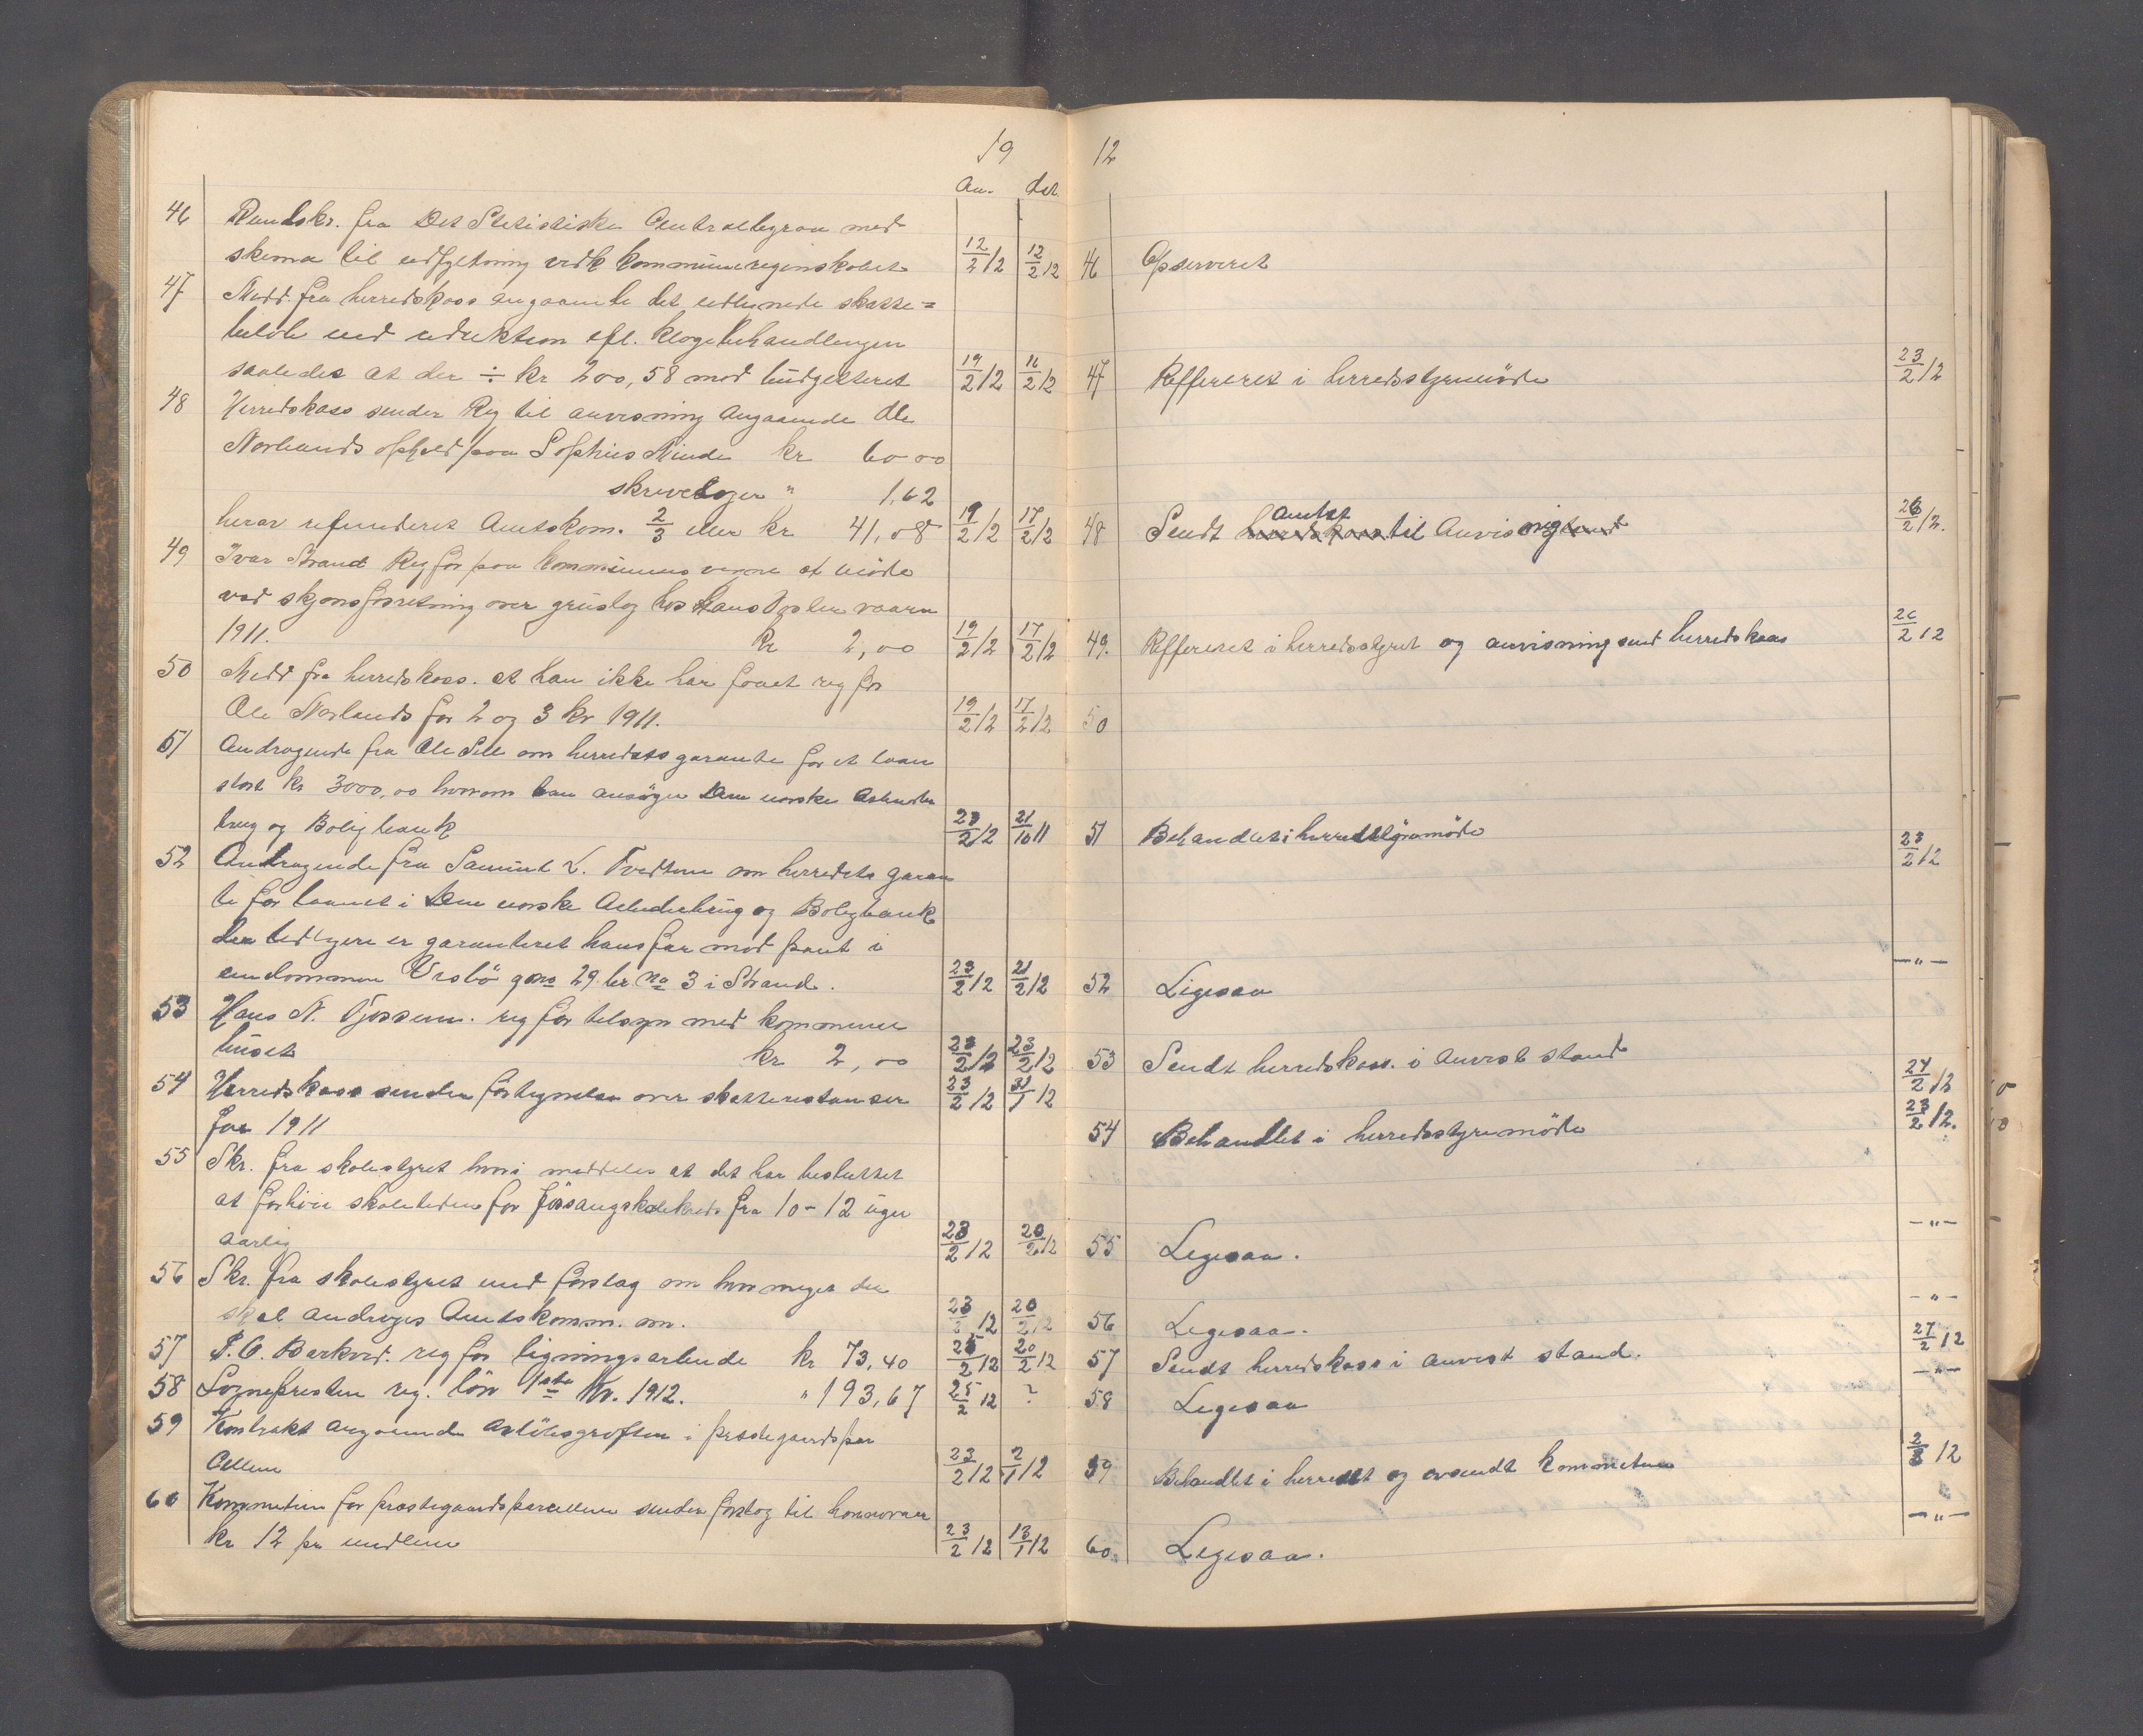 19
an. dat.
46 Rundskr. fra Det Statistiske Centralbyraa med
skema til udfyldning vedk kommuneregnskabet 12/2 12 12/2 12
47 Medd. fra herredskass angaaende det udlignede skatte=
beløb ved reduktion efl. klagebehandlingen
saaledes at der ÷ kr 200,58 mod budgetteret 19/2 12 16/2 12
48 Herredskass sender Reg til anvisning angaaende Ole
Norlands ophold paa Sophies Minde kr 60 00
skrivebøger " 1,62
herav refunderet Amtskom. 2/3 eller kr 41,08 19/2 12 17/2 12
49 Ivar Strand Reg for paa kommunens vegne at møde
ved skjønsforretning over grustag hos Hans vaaren
1911. Kr 2,00 19/2 12 17/2 12
50 Medd fra herredskass. at han ikke har faaet reg for
Ole Norlands for 2 og 3 kv 1911. 19/2 12 17/2 12
51 Andragende fra Ole Selle om herredets garante for et laan
stort kr 3000,00 hvorom han ansøger Den norske Arbeider
brug og Boligbank 23/2 12 21/10 11
52 Andragende fra Samuel L. Tvedtene om herredets garan
ti for laanet i Den norske Arbeiderbrug og Boligbank
der tidligere er garanteret hans far mod pant i
eiendommen Vrsbø gno 29 br. no 3 i Strand. 23/2 12 21/2 12
53 Hans N. Tjøssem. reg for tilsyn med kommune
huset kr 2,00 23/2 12 23/2 12
54 Herredskass sender fortegnelse over skatterestanser
for 1911 23/2 12 31/1 12
55 Skr. fra skolestyret hvori meddeles at det har besluttet
at forhøie skoletiden for Jøssangskolekreds fra 10-12 uger
aarlig 23/2 12 20/2 12
56 Skr. fra skolestyret med forslag om hvor meget der
skal andrages Amtskomm. om. 23/2 12 20/2 12
57 P.O. Barkved. reg for ligningsarbeide kr 73,40 25/2 12 20/2 12
58 Sognepresten reg. løn 1ste Kv. 1912. " 193,67 25/2 12 ?
59 Kontrakt angaaende avløbsgrøften i prestegaardspar
cellerne 23/2 12 2/1 12
60 Kommiteen for præstegaardsparcellerne sender forslag til honnorarer
kr 12 pr medlem 23/2 12 13/1 12
12
46 Opserveret
47 Reffereret i herredsstyremøde 23/2 12
48 Sendt herredskass amtet til Anvisning 26/2 12.
49. Reffereret i herredsstyret og anvisning send herredskass 26/2 12
50
51 Behandlet i herredstyremøde 23/2 12
52 Ligesaa —"—
53 Sendt herredskass. i anvist stand 24/2 12
54 Behandlet i herredsstyremøde 23/2 12.
55 Ligesaa. —"—
56 Ligesaa. —"—
57 Sendt herredskass i anvist stand. 27/2 12
58 Ligesaa —"—
59 Behandlet i herredst og avsendt kommiteen 2/3 12
60. Ligesaa. —"—